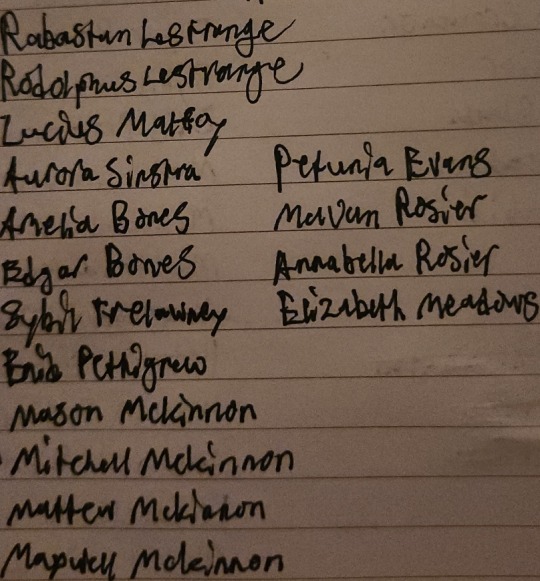 Rabastan Lestrange
Rodolphus Lestrange
Lucius Malfoy
Aurora Sinstra
Amelia Bones
Edgar Bones
Sybil Trelawney
Enid Pethigrew
Mason Mckinnon
Mitchell Mckinnon
Matten Mckinnon
Mckinnon
Petunia Evans
Mavan Rosier
Annabella Rosier
Elizabeth Meadows